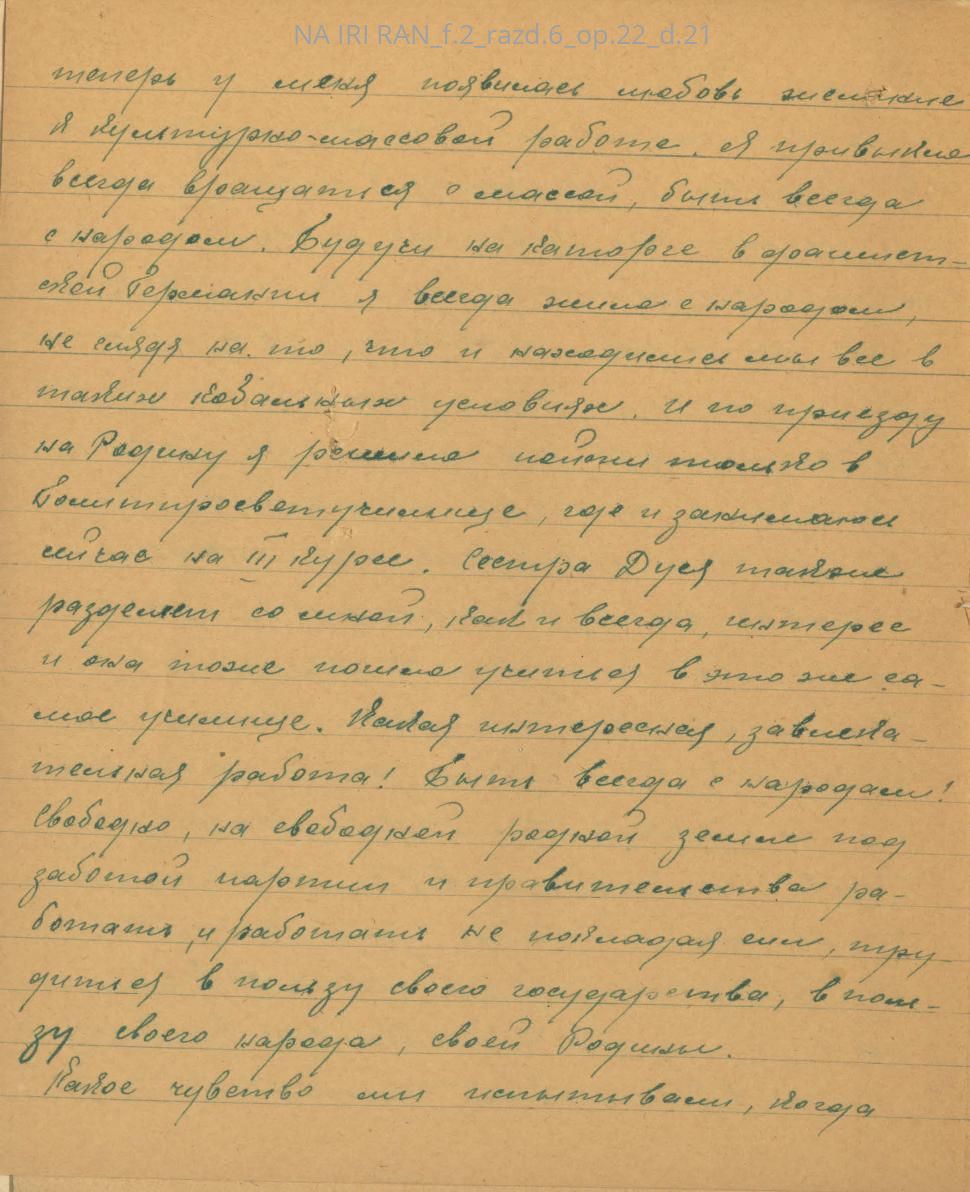 NA IRI RAN_f.2_razd.6_op.22_d.21
теперь у меня появилась любовь
к культурно-массовой работе. Я привыкла
всегда вращаться с массой, быть всегда
с народом. Будучи на каторге в фашист-
ской Германии я всегда жила с народом,
не глядя на то, что и находились мы все в
таких кобальных условиях. И по приезду
на Родину я решила пойти только в
Политпросветучилище, где и занимаюсь
сейчас на III курсе. Сестра Дуся также
разделяет со мной, как и всегда, интерес
и она тоже пошла учиться в это же са-
мое училище. Какая интересная, завлека-
тельная работа! Быть всегда с народом!
Свободно, на свободной родной земле под
заботой партии и правительства ра-
ботать, и работать не покладая сил, тру-
диться в пользу своего государства, в поль-
зу своего народа, своей Родины.
Какое чувство мы испытывали, когда